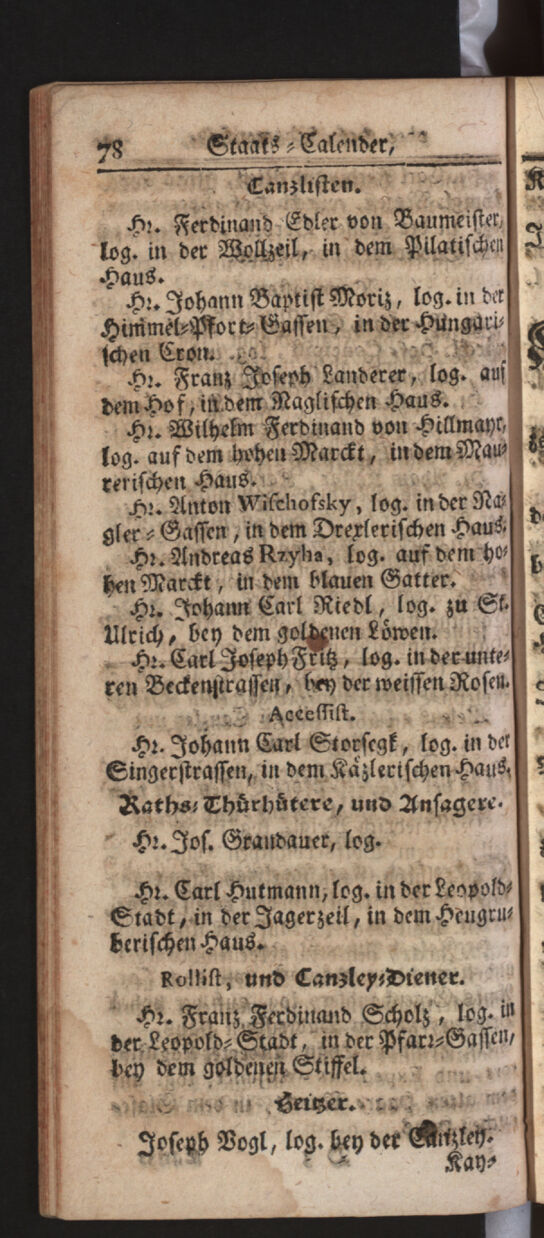 78 Staats-Calender,
Canzlisten.
Hr. Ferdinand Edler von Baumeister,
log. in der Wollzeil, in dem Pilatischen
Haus.
Hr. Johann Baptist Moriz, log. in der
Himmel-Pfort-Gassen, in der Hungari-
schen Cron.
Hr. Franz Joseph Landerer, log. auf
dem Hof, in dem Naglischen Haus.
Hr. Wilhelm Ferdinand von Hillmayr,
log. auf dem hohen Marckt, in dem Mau-
rerischen Haus.
Hr. Anton Wischofsky, log. in der Na-
gler-Gassen, in dem Drexlerischen Haus.
Hr. Andreas Rzyha, log. auf dem ho-
hen Marckt, in dem blauen Gatter.
Hr. Johann Carl Riedl, log. zu St.
Ulrich, bey dem goldenen Löwen.
Hr. Carl Joseph Fritz, log. in der unte-
ren Beckenstrassen, bey der weissen Rosen.
Accessist.
Hr. Johann Carl Storsegk, log. in der
Singerstrassen, in dem Käzlerischen Haus.
Raths-Thürhütere, und Ansagere.
Hr. Jos. Grandauer, log.
Hr. Carl Hutmann, log. in der Leopold-
Stadt, in der Jagerzeil, in dem Heugru-
berischen Haus.
Rollist, und Canzley-Diener.
Hr. Franz Ferdinand Scholz, log. in
der Leopold-Stadt, in der Pfarr-Gassen,
bey dem goldenen Stiffel.
Heitzer.
Joseph Vogl, log. bey der Cantzley.
Kay-